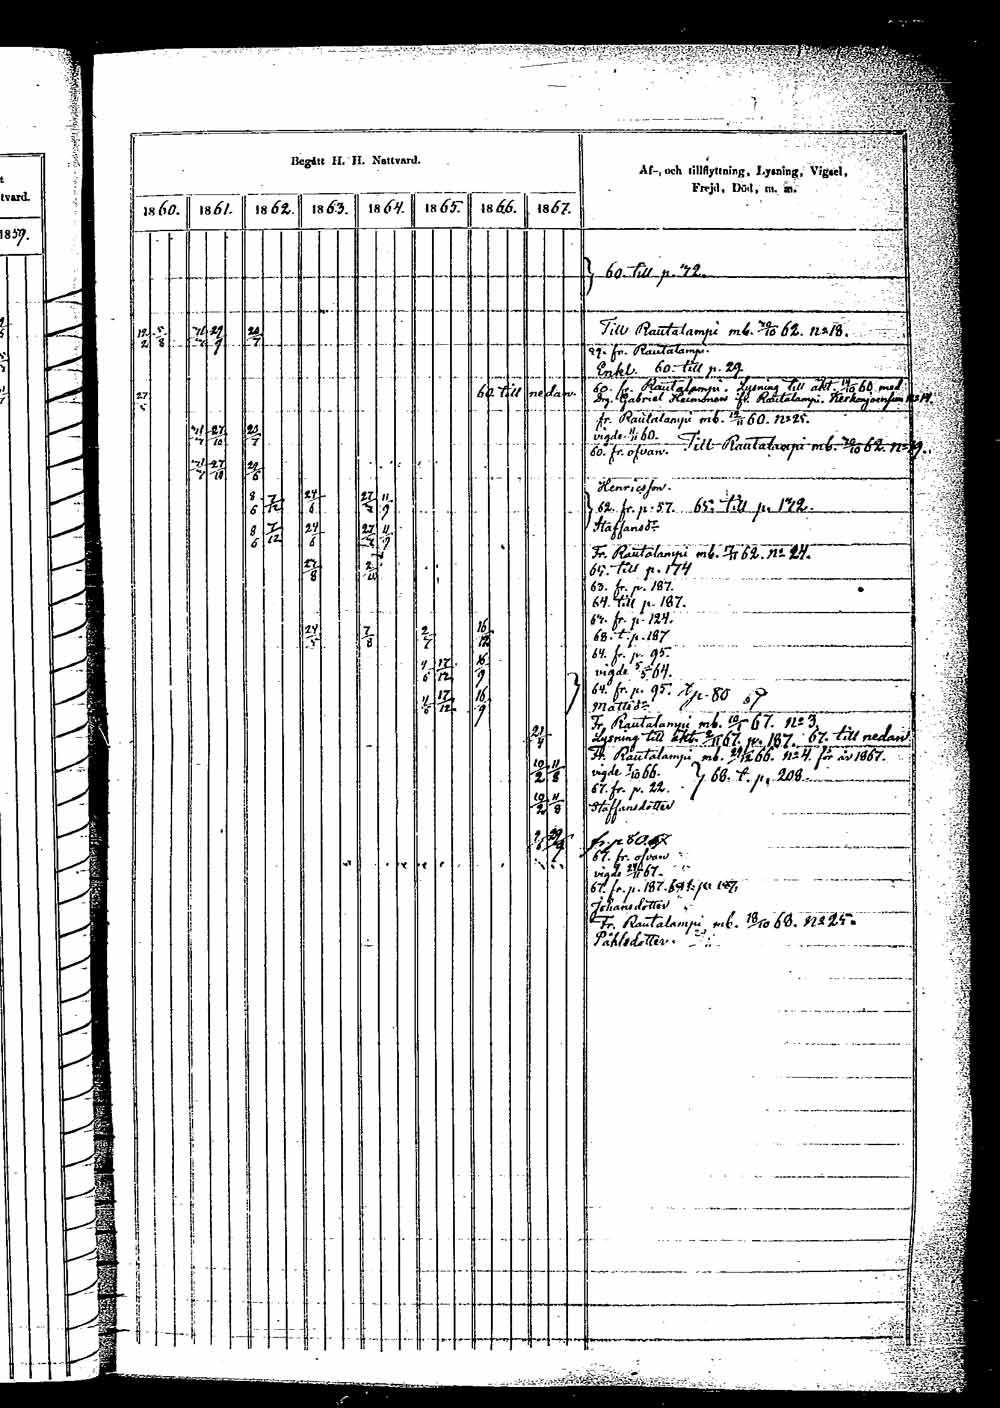 t
tvard.
1859.
Begått H. H. Nattvard.
Af-, och tillflyttning, Lysning, Vigsel,
Frejd, Död, m. m.
1860. 1861. 1862. 1863. 1864. 1865. 1866. 1867.
60. till p. 72.
12/2 5/8 29/9 20/7 Till Rautalampi mb. 20/10 62. No 18.
fr. Rautalampi.
Enkl. 60. till p. 29.
60. fr. Rautalampi. Lysning till äkt. 14/10 60 med
27 60 till nedan. Drg. Gabriel Heimonen fr. Rautalampi.
fr. Rautalampi mb. 12/11 60. No 25.
27/10 20/7 vigde 11/11 60.
60. fr. ofvan. Till Rautalampi mb. 20/10 62. No 19.
27/10 20/6
Henricsson.
8/6 7/12 24/6 27/2 11/9 62. fr. p. 57. 65. till p. 172.
8/6 7/12 24/6 27/2 11/9 Staffansdr
Fr. Rautalampi mb. 7/11 62. No 24.
27/8 2/10 65. till p. 174
63. fr. p. 187.
64. till p. 187.
64. fr. p. 124.
24/5 7/8 2/7 16/12 68. t. p. 187
64. fr. p. 95.
4/6 17/12 16/9 vigde 5/5 64.
64. fr. p. 95. p. 80 67
4/6 17/12 16/9 Mattsdr
Fr. Rautalampi mb. 10/1 67. No 3.
21/4 Lysning till äkt. 2/11 67. p. 187. 67. till nedan
Fr. Rautalampi mb. 29/12 66. No 4. för år 1867.
10/2 11/8 vigde 7/10 66. 68. t. p. 208.
67. fr. p. 22.
10/2 11/8 Staffansdotter
9/6 29/9 fr. p 80. 67
67. fr. ofvan
vigde 24/11 67.
67. fr. p. 187.
Johansdotter
Fr. Rautalampi, mb. 18/10 68. No 25.
Påhlsdotter.